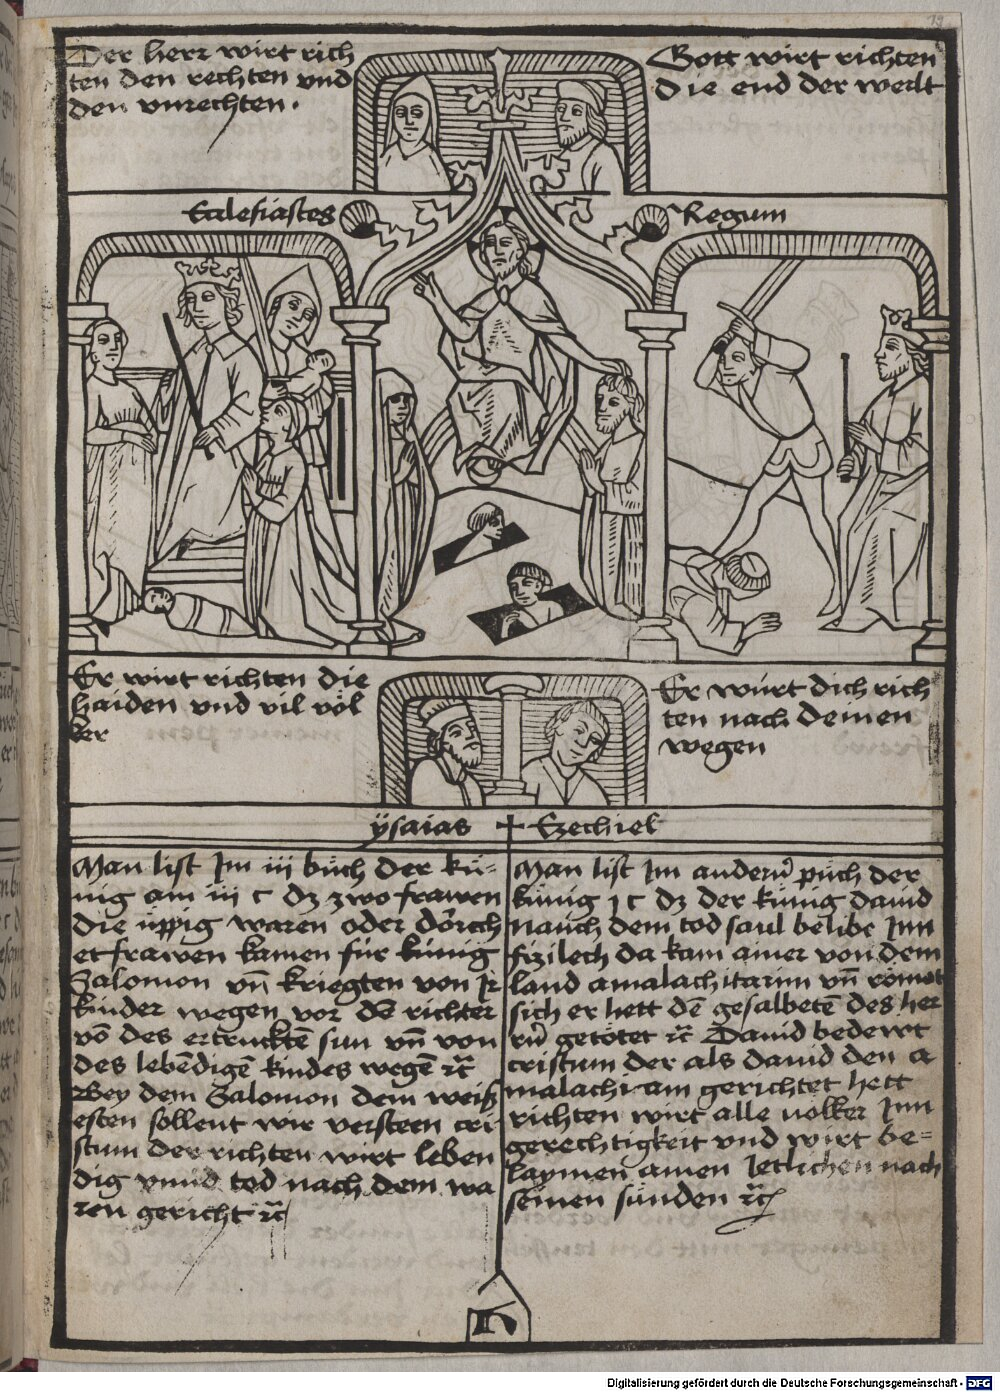 Der herr wirt rich
ten den rechten vnd
den vnrechten .
Gott wirt richten
die end der weilt
Eclesiastes
Regum
Er wirt richten die
haiden vnd vil völ
ker
Er würt dich rich
ten nach deinen
wegen
ÿsaias
Ezechiel
Man list Im iii büch der kü-
nig am iii c dz zwo frawen
die üppig waren oder dörch
et frawen kamen für künig
Salomon vn̄ kriegten von Ir
kinder wegen vor dē richter
vō des ertrucktē sun vn̄ von
des lebēdigē kindes wegē ꝛc̄
Bey dem Salomon dem weiß
esten sollent wir versteen cri
stum der richten wirt leben
dig vnnd tod nach dem wa
ren gericht ꝛc̄
Man list Im anderū püch der
künig 1 c dz der künig dauid
nauch dem tod saul belibe Inn
sizilech da kam ainer von dem
land amalachitarim vn̄ römet
sich er hett dē gesalbetē des her
rū getötet ꝛc̄ Dauid bedewt
cristum der als dauid den a
malachi am gerichtet hett
richten wirt alle uolker Inn
gerechtigkeit vnd wirt be=
laymen ainen Jetlichen nach
seinen sünden ꝛc̄
n
Digitalisierung gefördert durch die Deutsche Forschungsgemeinschaft - DFG